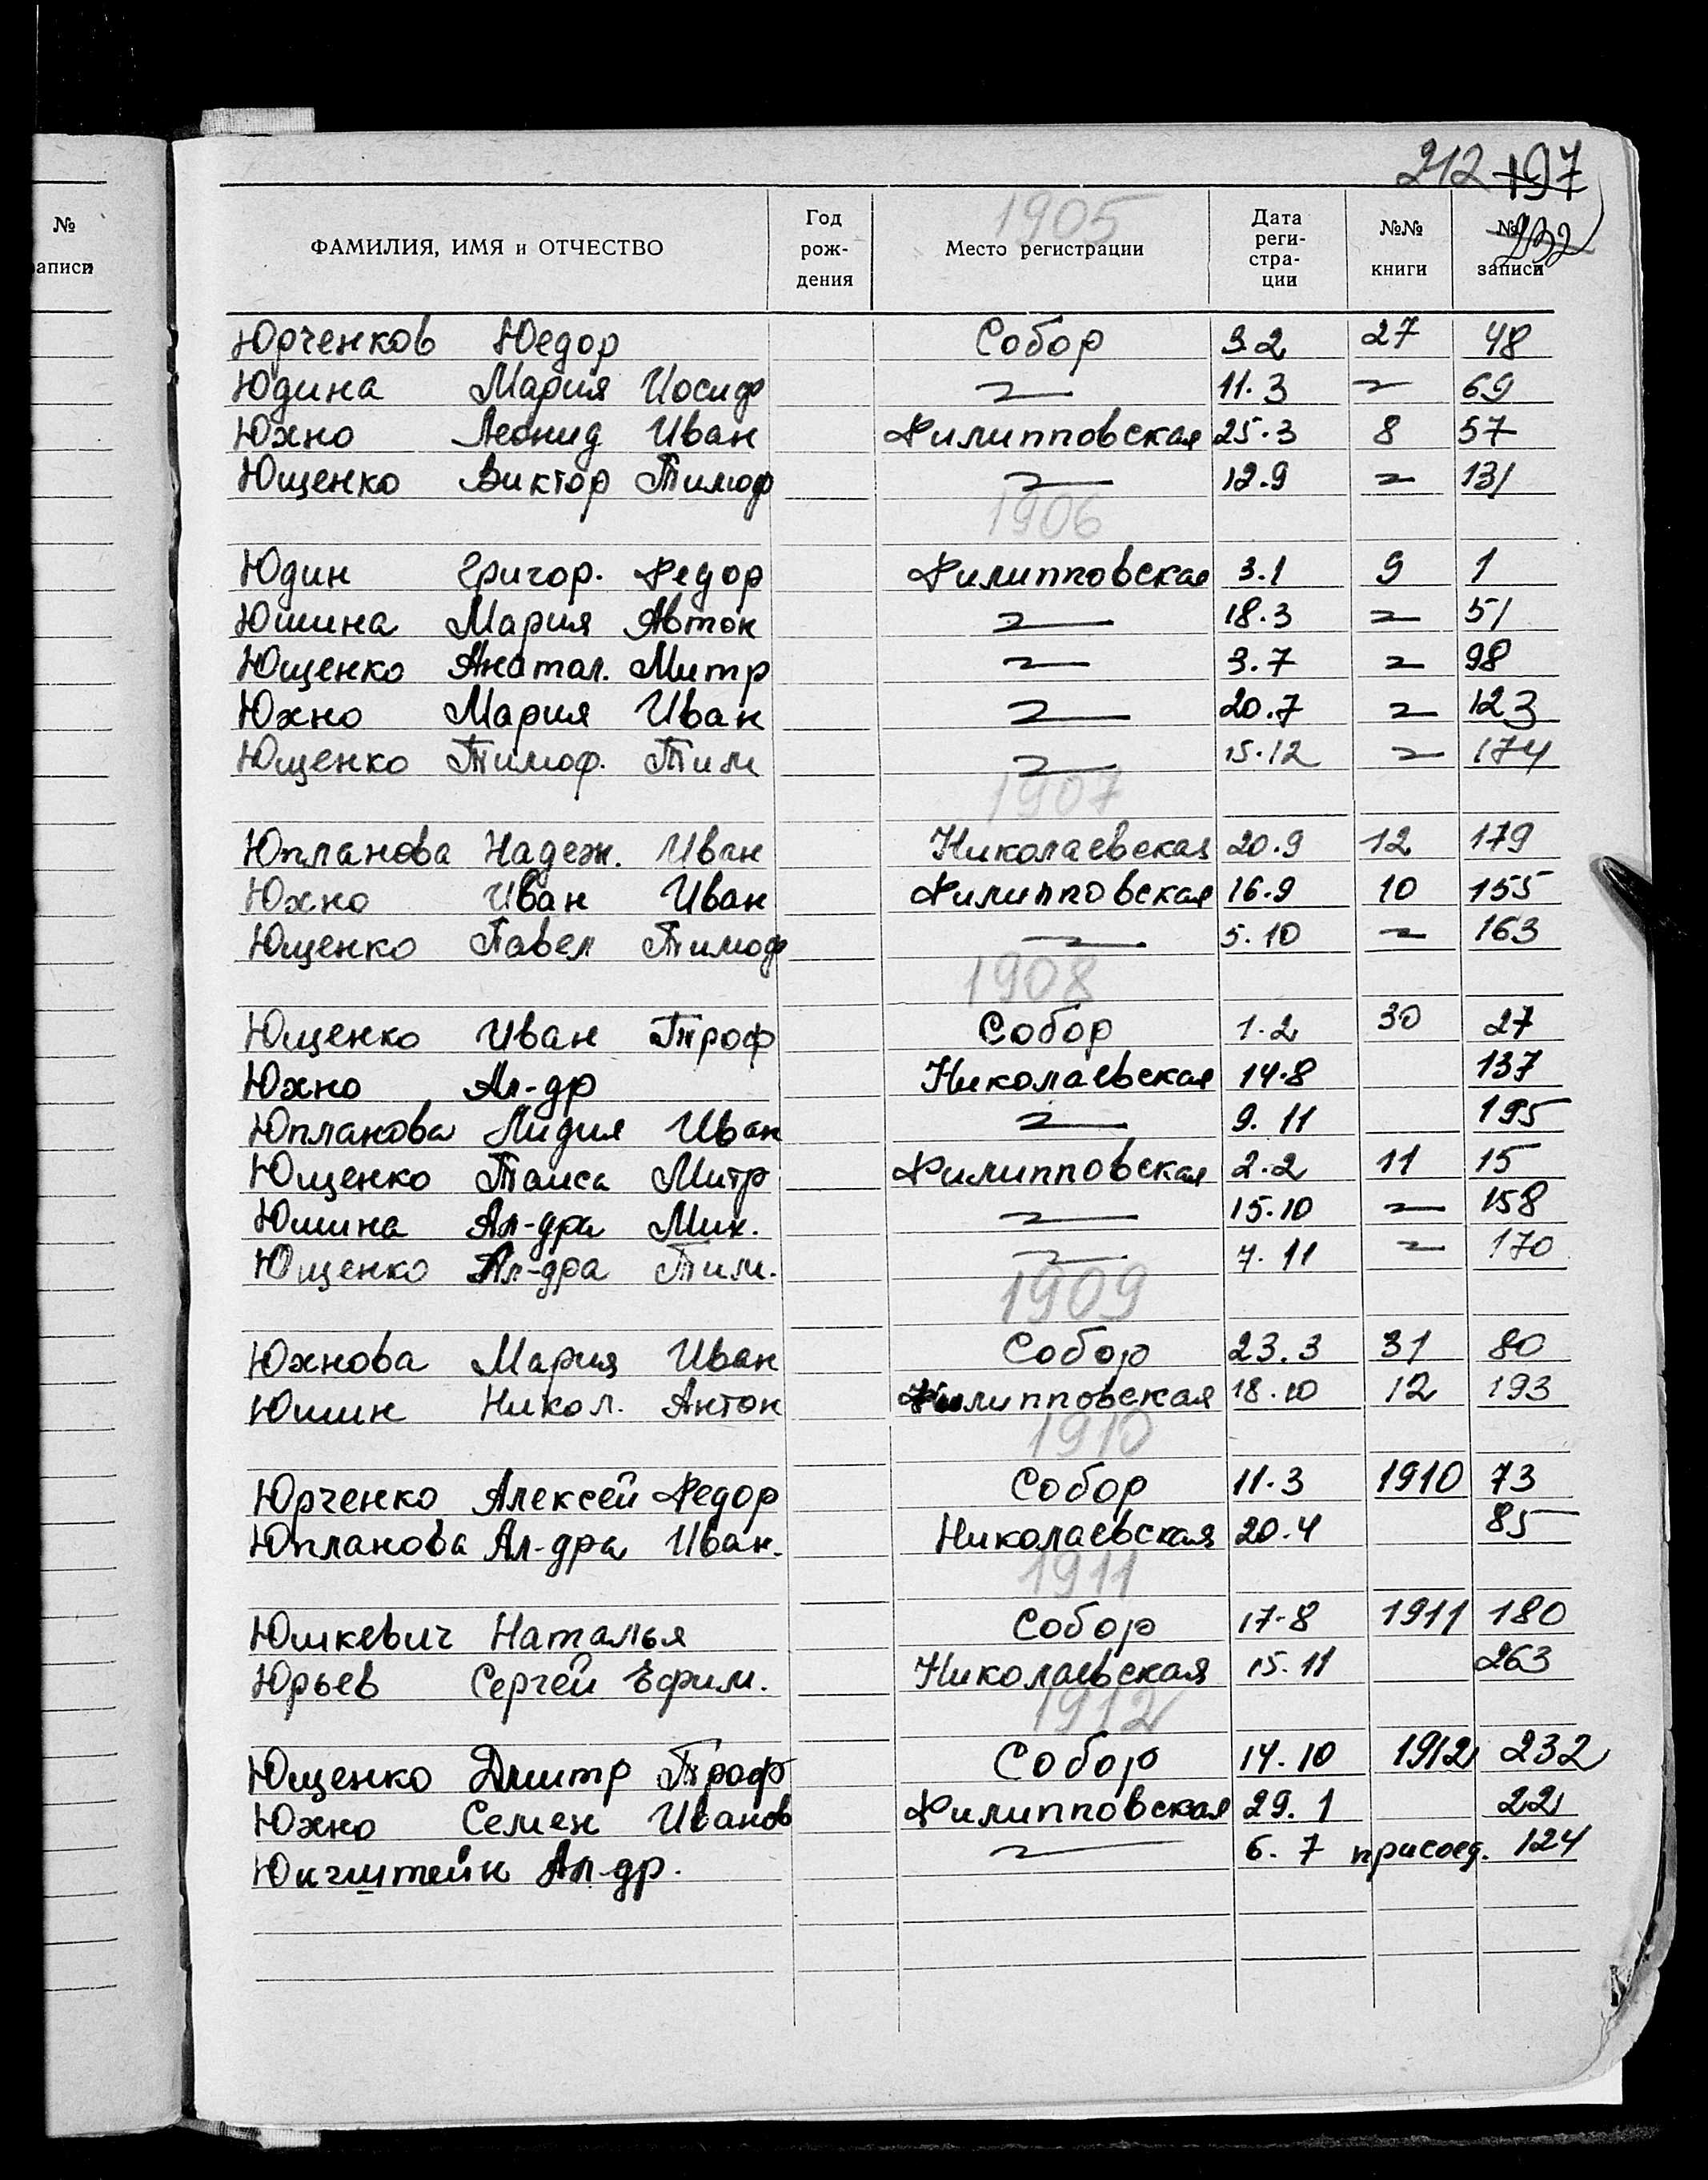 212 197
232
№
записи
ФАМИЛИЯ, ИМЯ и ОТЧЕСТВО Год рож-дения Место регистрации Дата реги-стра-ции №№ книги № записи
1905
Юрченков Юедор Собор 3.2 27 48
Юдина Мария Иосиф 〃 11.3 〃 69
Южно Леонид Иван Филипповская 25.3 8 57
Ющенко Виктор Тимоф 〃 12.9 〃 131
1906
Юдин Григор. Федор Филипповская 3.1 9 1
Юшина Мария Авток 〃 18.3 〃 51
Ющенко Анатол. Митр 〃 3.7 〃 98
Южно Мария Иван 〃 20.7 〃 123
Ющенко Тимоф. Тим 〃 15.12 〃 174
1907
Юпланова Надеж. Иван Николаевская 20.9 12 179
Южно Иван Иван Филипповская 16.9 10 155
Ющенко Павел Тимоф 〃 5.10 〃 163
1908
Ющенко Иван Троф Собор 1.2 30 27
Южно Ал-др Николаевская 14.8 137
Юпланова Лидия Иван 〃 9.11 195
Ющенко Таиса Митр Филипповская 2.2 11 15
Юшина Ал-дра Мих. 〃 15.10 〃 158
Ющенко Ал-дра Тим. 〃 7.11 〃 170
1909
Юхнова Мария Иван Собор 23.3 31 80
Юшин Никол. Антон Филипповская 18.10 12 193
1910
Юрченко Алексей Федор Собор 11.3 1910 73
Юпланова Ал-дра Иван. Николаевская 20.4 85
1911
Юшкевич Наталья Собор 17.8 1911 180
Юрьев Сергей Ефим. Николаевская 15.11 263
1912
Ющенко Дмитр Троф Собор 14.10 1912 232
Южно Семен Иванов Филипповская 29.1 22
Ал-др. 〃 6.7 присоед. 124